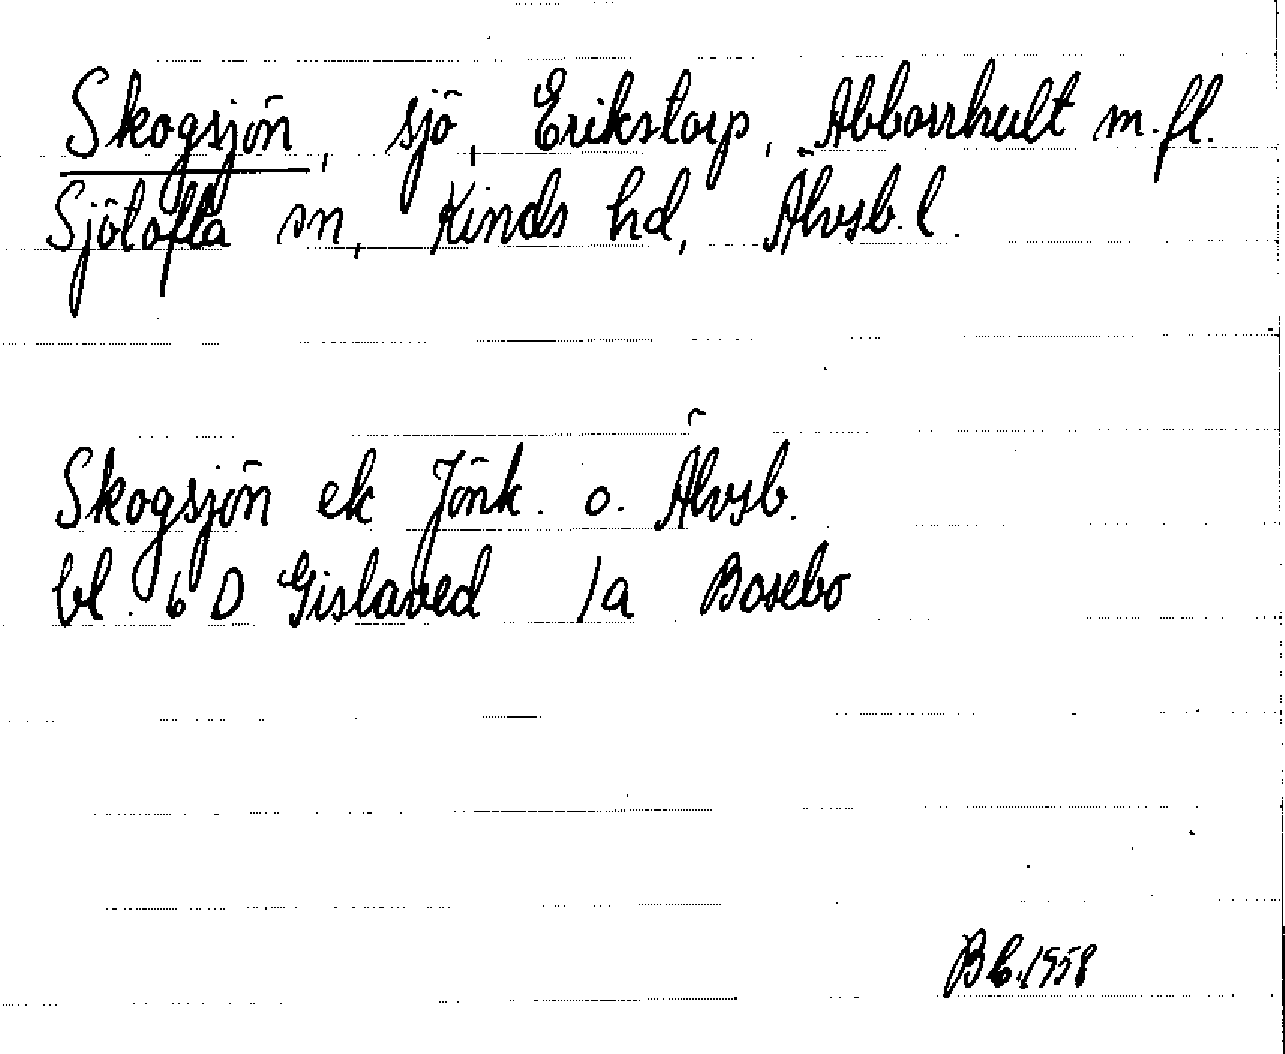 Skogsjön, sjö, Erikstorp, Abborrhult m.fl.
Sjötofta sn, Kinds hd, Älvsb. l.
Skogsjön ek Jönk. o. Älvsb.
bl. 6 D Gislaved 1a Bosebo
1958